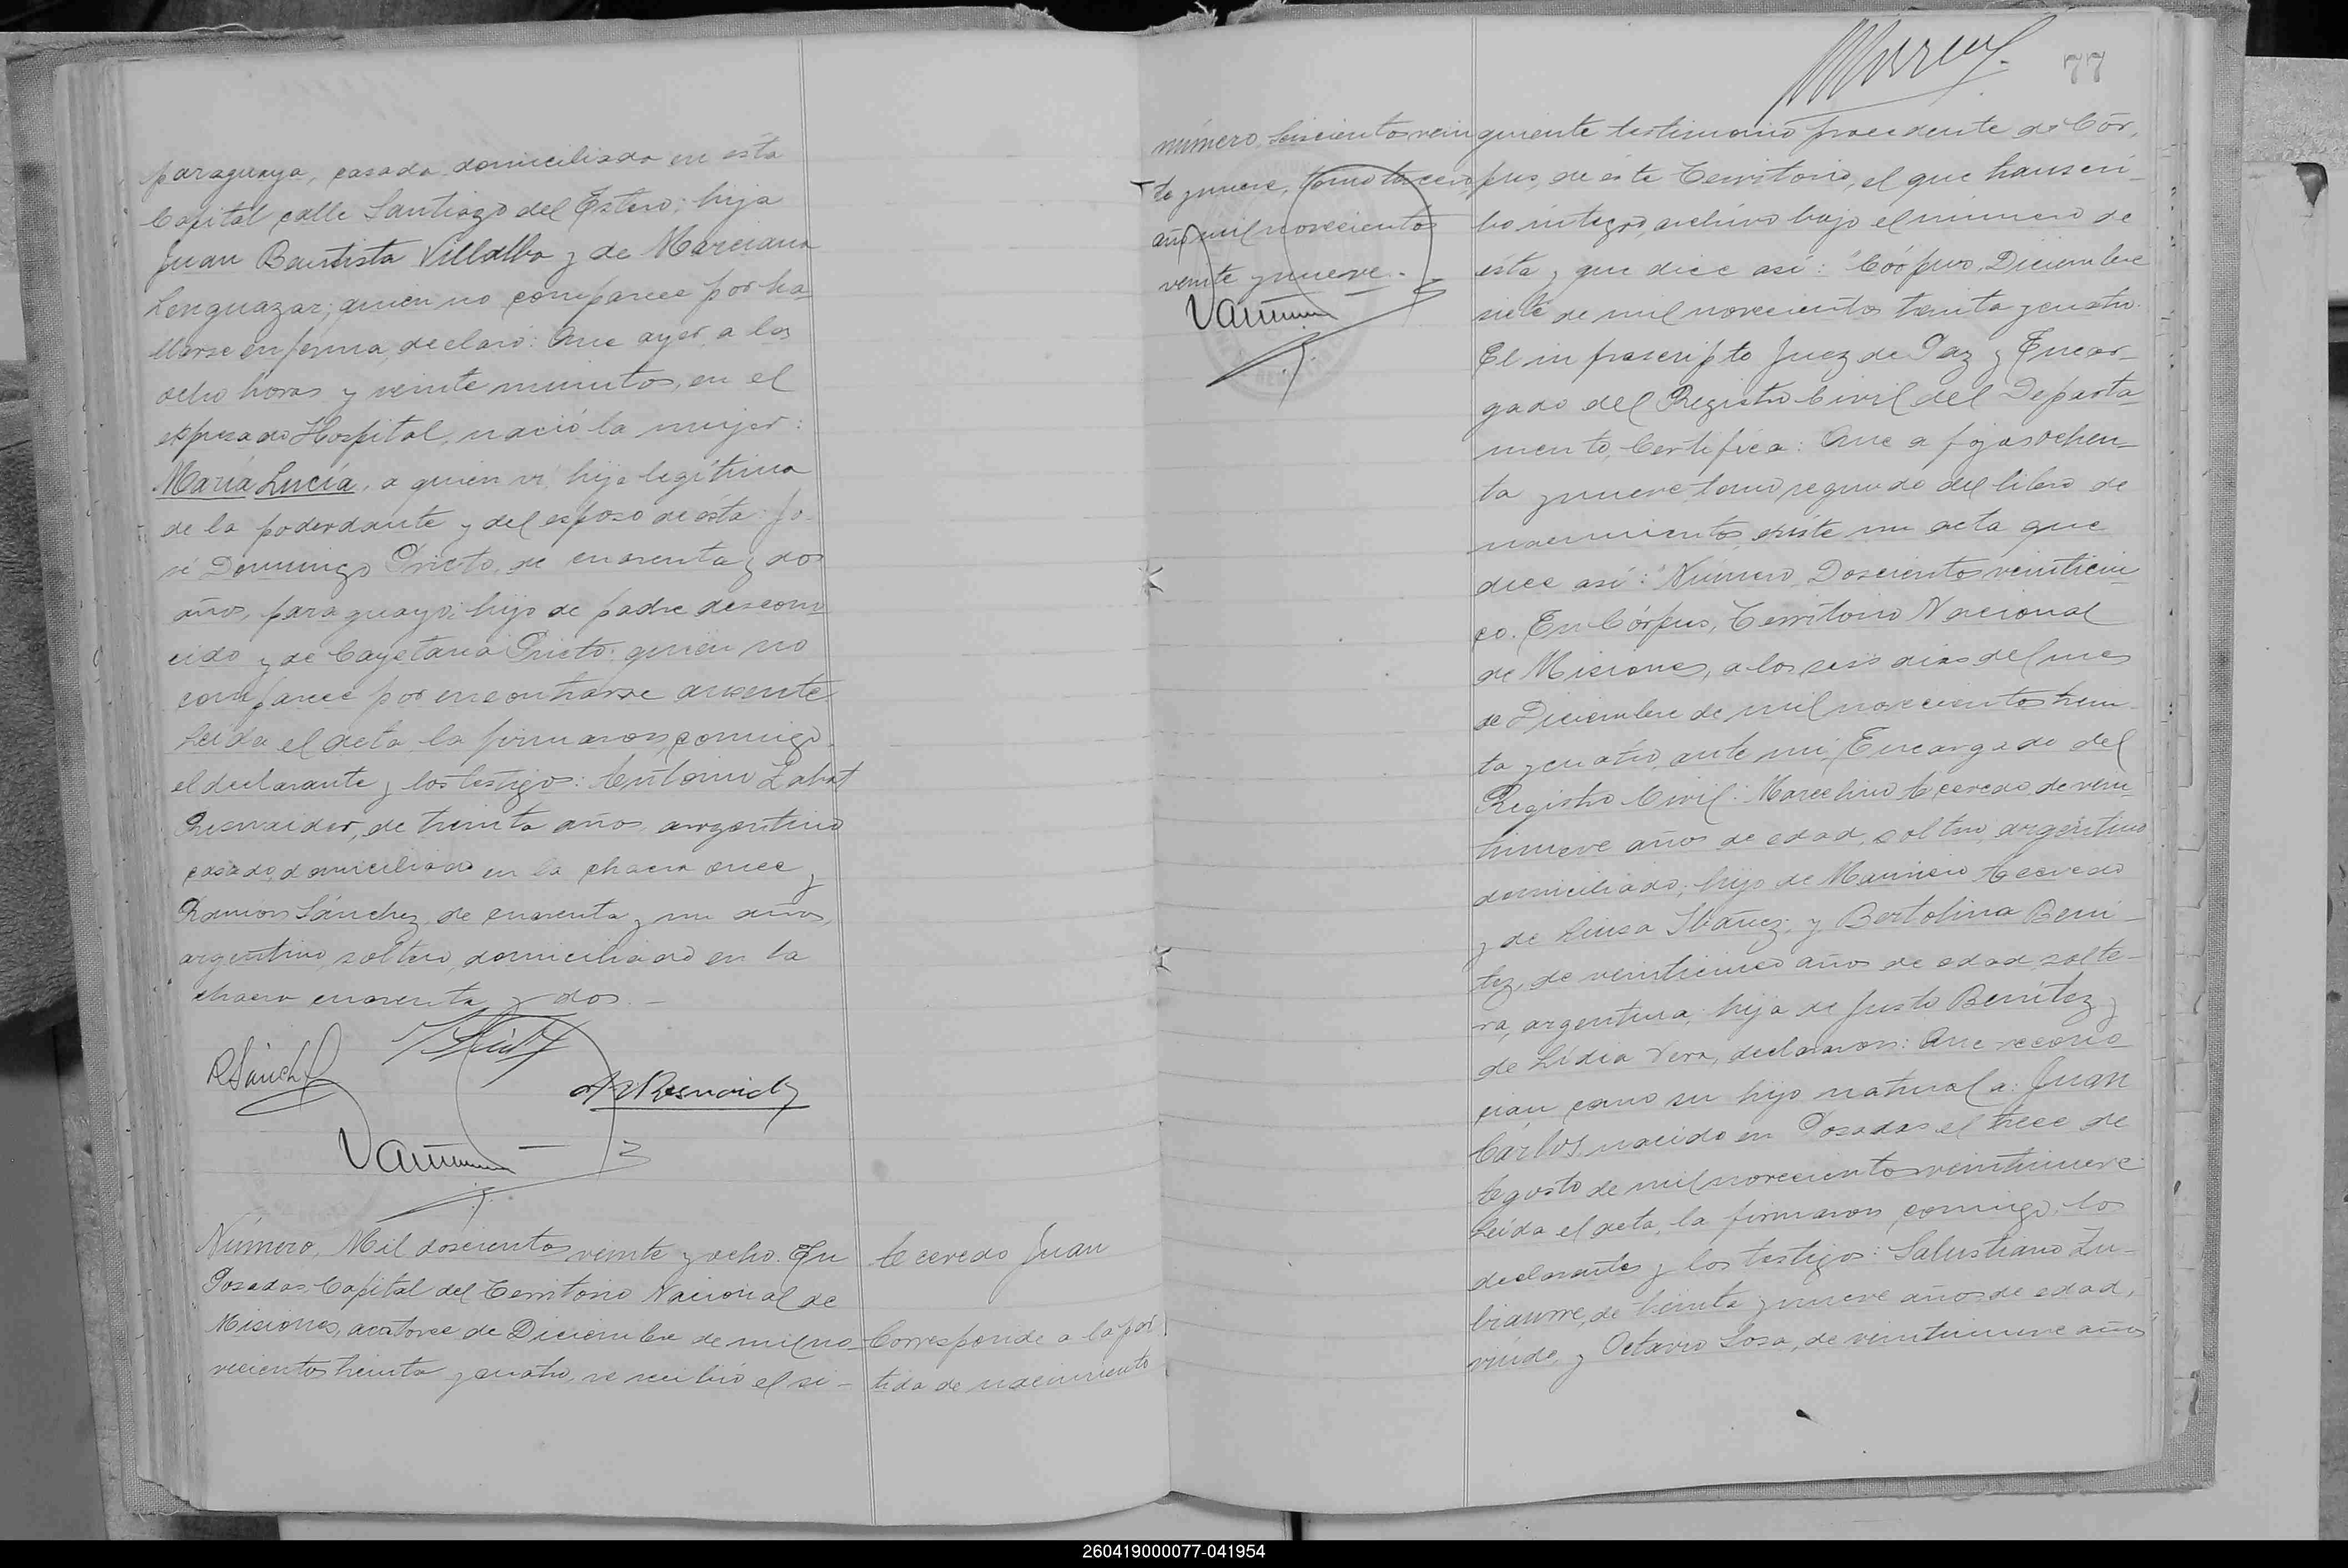 paraguaya, casada, domiciliada en ésta
Capital calle Santiago del Estero; hija
Juan Bautista Villalba y de Marciana
Lenguazar; quien no comparece por ha-
llarse enferma, declaró: Que ayer, a las
ocho horas y veinte minutos, en el
expresado Hospital, nació la mujer:
María Lucía, a quien vi, hija legítima
de la poderdante y del esposo de ésta Jo-
sé Domingo Prieto, de cuarenta y dos
años, paraguayo; hijo de padre descono-
cido y de Cayetana Prieto; quien no
comparece por encontrarse ausente.
Leída el acta la firmaron, conmigo,
el declarante y los testigos: Antonio Labat
Resnaider, de treinta años, argentino
casado, domiciliado en la chacra once y
Ramón Sánchez, de cuarenta y un años,
argentino, soltero, domiciliado en la
chacra cuarenta y dos.-
RSánch
Número, Mil doscientos veinte y ocho. En
Posadas Capital del Territorio Nacional de
Misiones, a catorce de Diciembre de mil no-
vecientos treinta y cuatro, se recibió el si-
Acevedo Juan
Corresponde a la par-
tida de nacimiento
77
número, Seiscientos vein
te y nueve, tomo tercero
año mil novecientos
veinte y nueve.-
guiente testimonio procedente de Cór-
pus, de éste Territorio, el que transcri-
bo íntegro, archivo bajo el número de
ésta y que dice así: "Córpus, Diciembre
siete de mil novecientos treinta y cuatro.
El infrascripto Juez de Paz y Encar-
gado del Registro Civil del Departa-
mento, Certifica: Que a fojas ochen-
ta y nueve tomo segundo del libro de
nacimientos, existe un acta que
dice así: "Número, Doscientos veinticin-
co. En Córpus, Territorio Nacional
de Misiones, a los seis días del mes
de Diciembre de mil novecientos trein-
ta y cuatro, ante mi, Encargado del
Registro Civil: Marcelino Acevedo, de vein-
tinueve años de edad, soltero, argentino
domiciliado; hijo de Mauricio Acevedo
y de Luisa Ibañez; y Bertolina Bení-
tez, de veinticinco años de edad, solte-
ra, argentina, hija de Justo Benítez y
de Lidia Vera, declararon: Que recono-
cían como su hijo natural a: Juan
Carlos, nacido en Posadas el trece de
Agosto de mil novecientos veintinueve.
Leída el acta, la firmaron, conmigo, los
declarantes y los testigos: Salustiano Zu-
biaurre, de treinta y nueve años de edad,
viudo, y Octavio Sosa, de veintinueve años
260419000077-041954